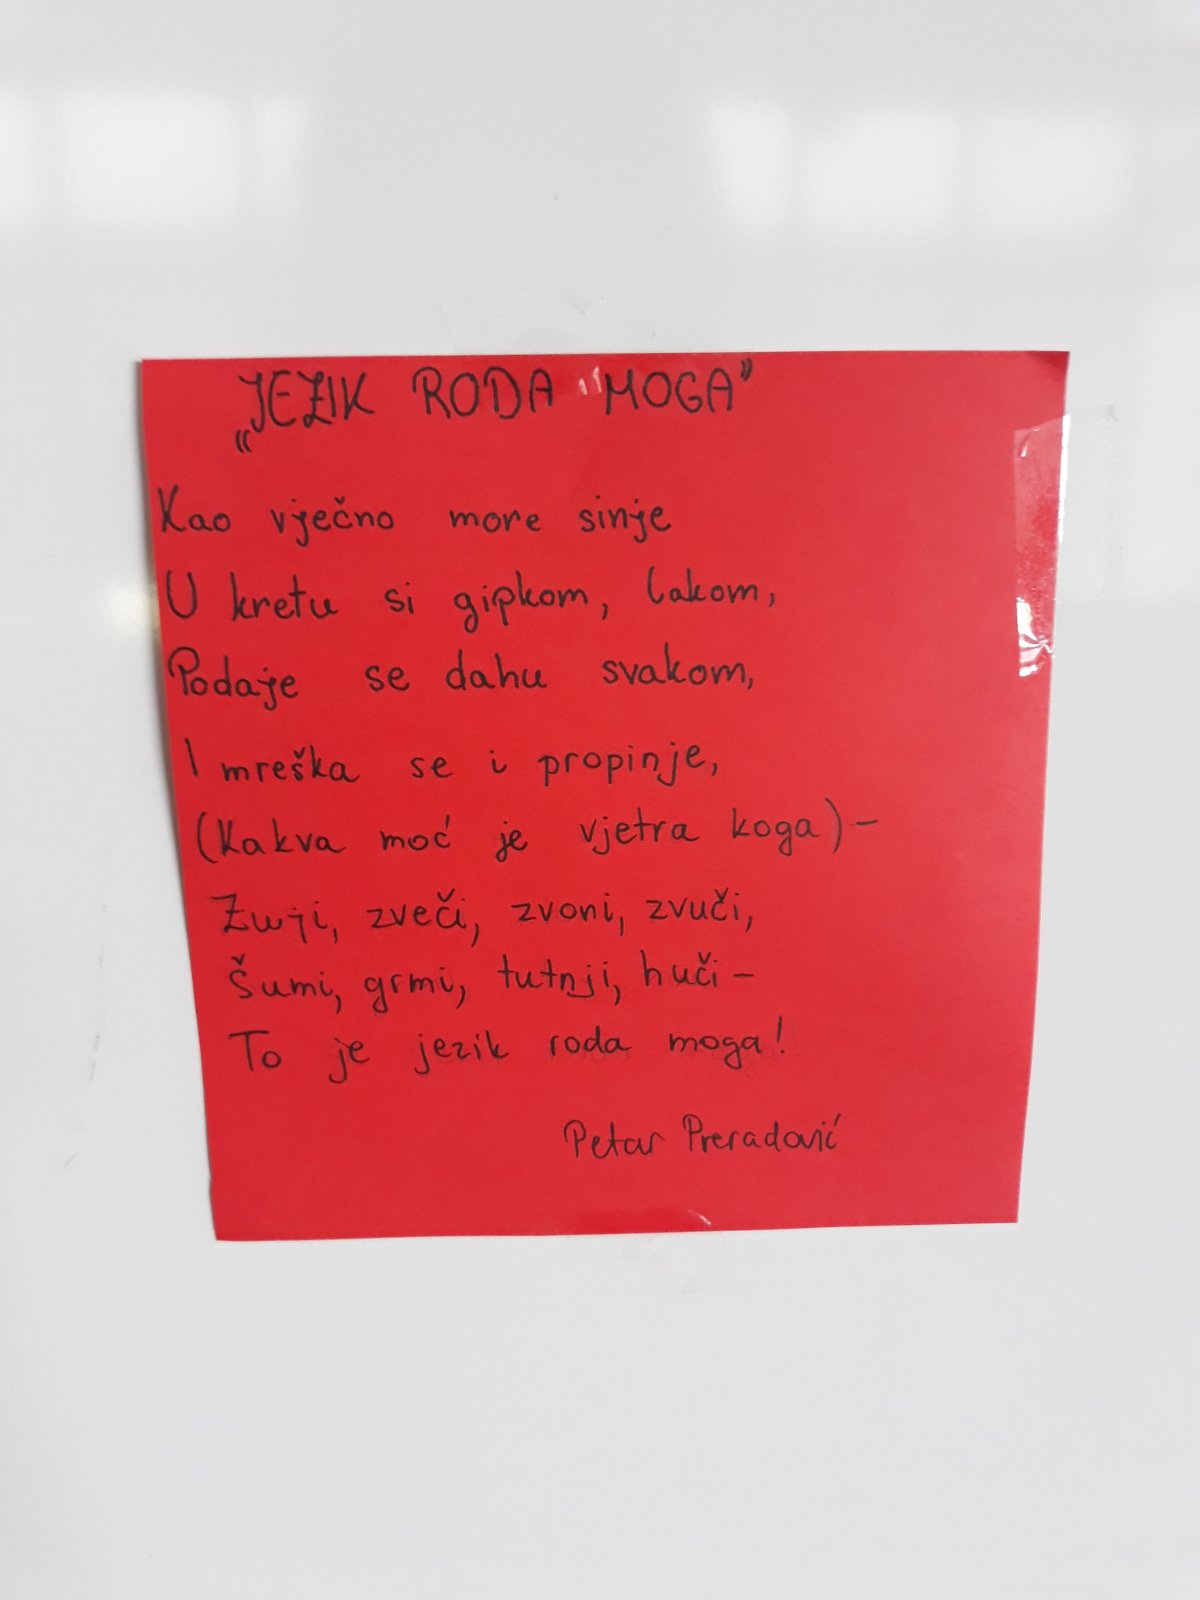 „JEZIK RODA MOGA”
Kao vječno more sinje
U kretu si gipkom, lakom,
Podaje se dahu svakom,
I mreška se i propinje,
(Kakva moć je vjetra koga) –
Zuji, zveči, zvoni, zvuči,
Šumi, grmi, tutnji, huči –
To je jezik roda moga!
Petar Preradović